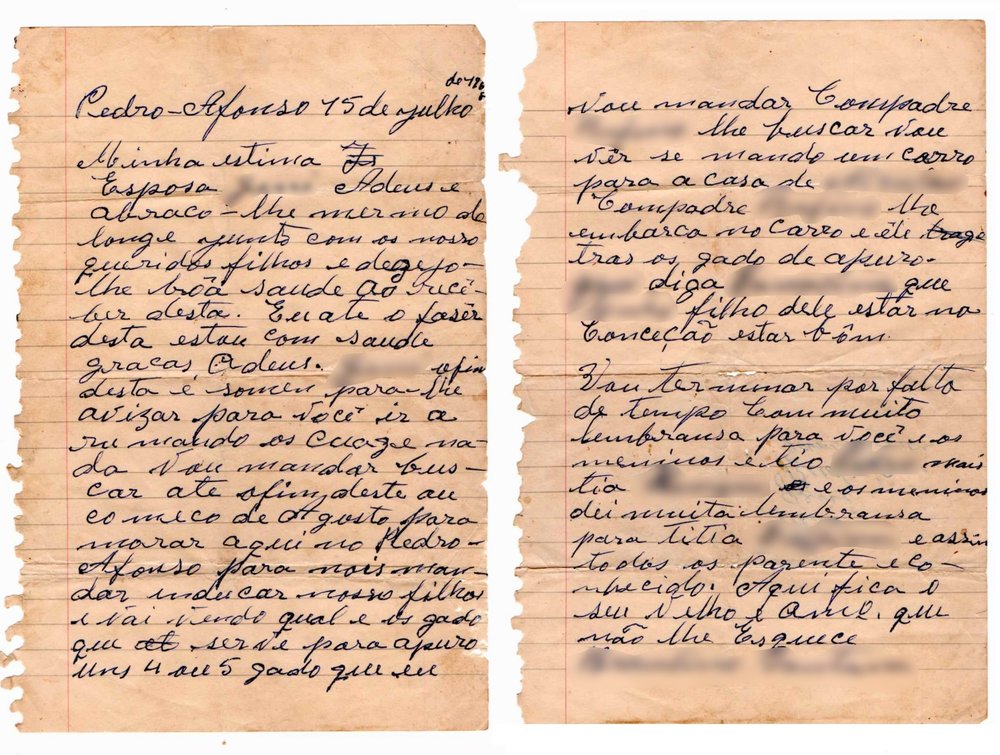 de 196
Pedro-Afonso 15 de julho
Minha estima
Esposa Adeus e
abraco-lhe mermo de
longe junto com os nosso
queridos filhos e desejo-
lhe bôa saude ao rucê-
ber desta. Eu ate o fasêr
desta estou com saude
gracas Adeus. ofin
desta é somen para-lhe
avizar para você ir a
rumando os cuage na-
da vou mandar bus-
car ate ofin deste au
comeco de Agosto para
morar aqui no Pedro-
Afonso para nois man-
dar inducar nosso filhos
e vai vendo qual e os gado
que serve para apuro
uns 4 ou 5 gado que eu
vou mandar Compadre
lhe buscar vou
vêr se mando um carro
para a casa de
Compadre lhe
embarca no carro e êle
tras os gado de apuro.
diga que
filho dele estar na
Conceção estar bôm.
Vou terminar por falta
de tempo Com muito
lembransa para você e os
meninos e tio mais
tia e os meninos
dei muita lembransa
para titia e assin
todos os parente e co-
nhecido. Aqui fica o
seu velho e que
não lhe Esquece